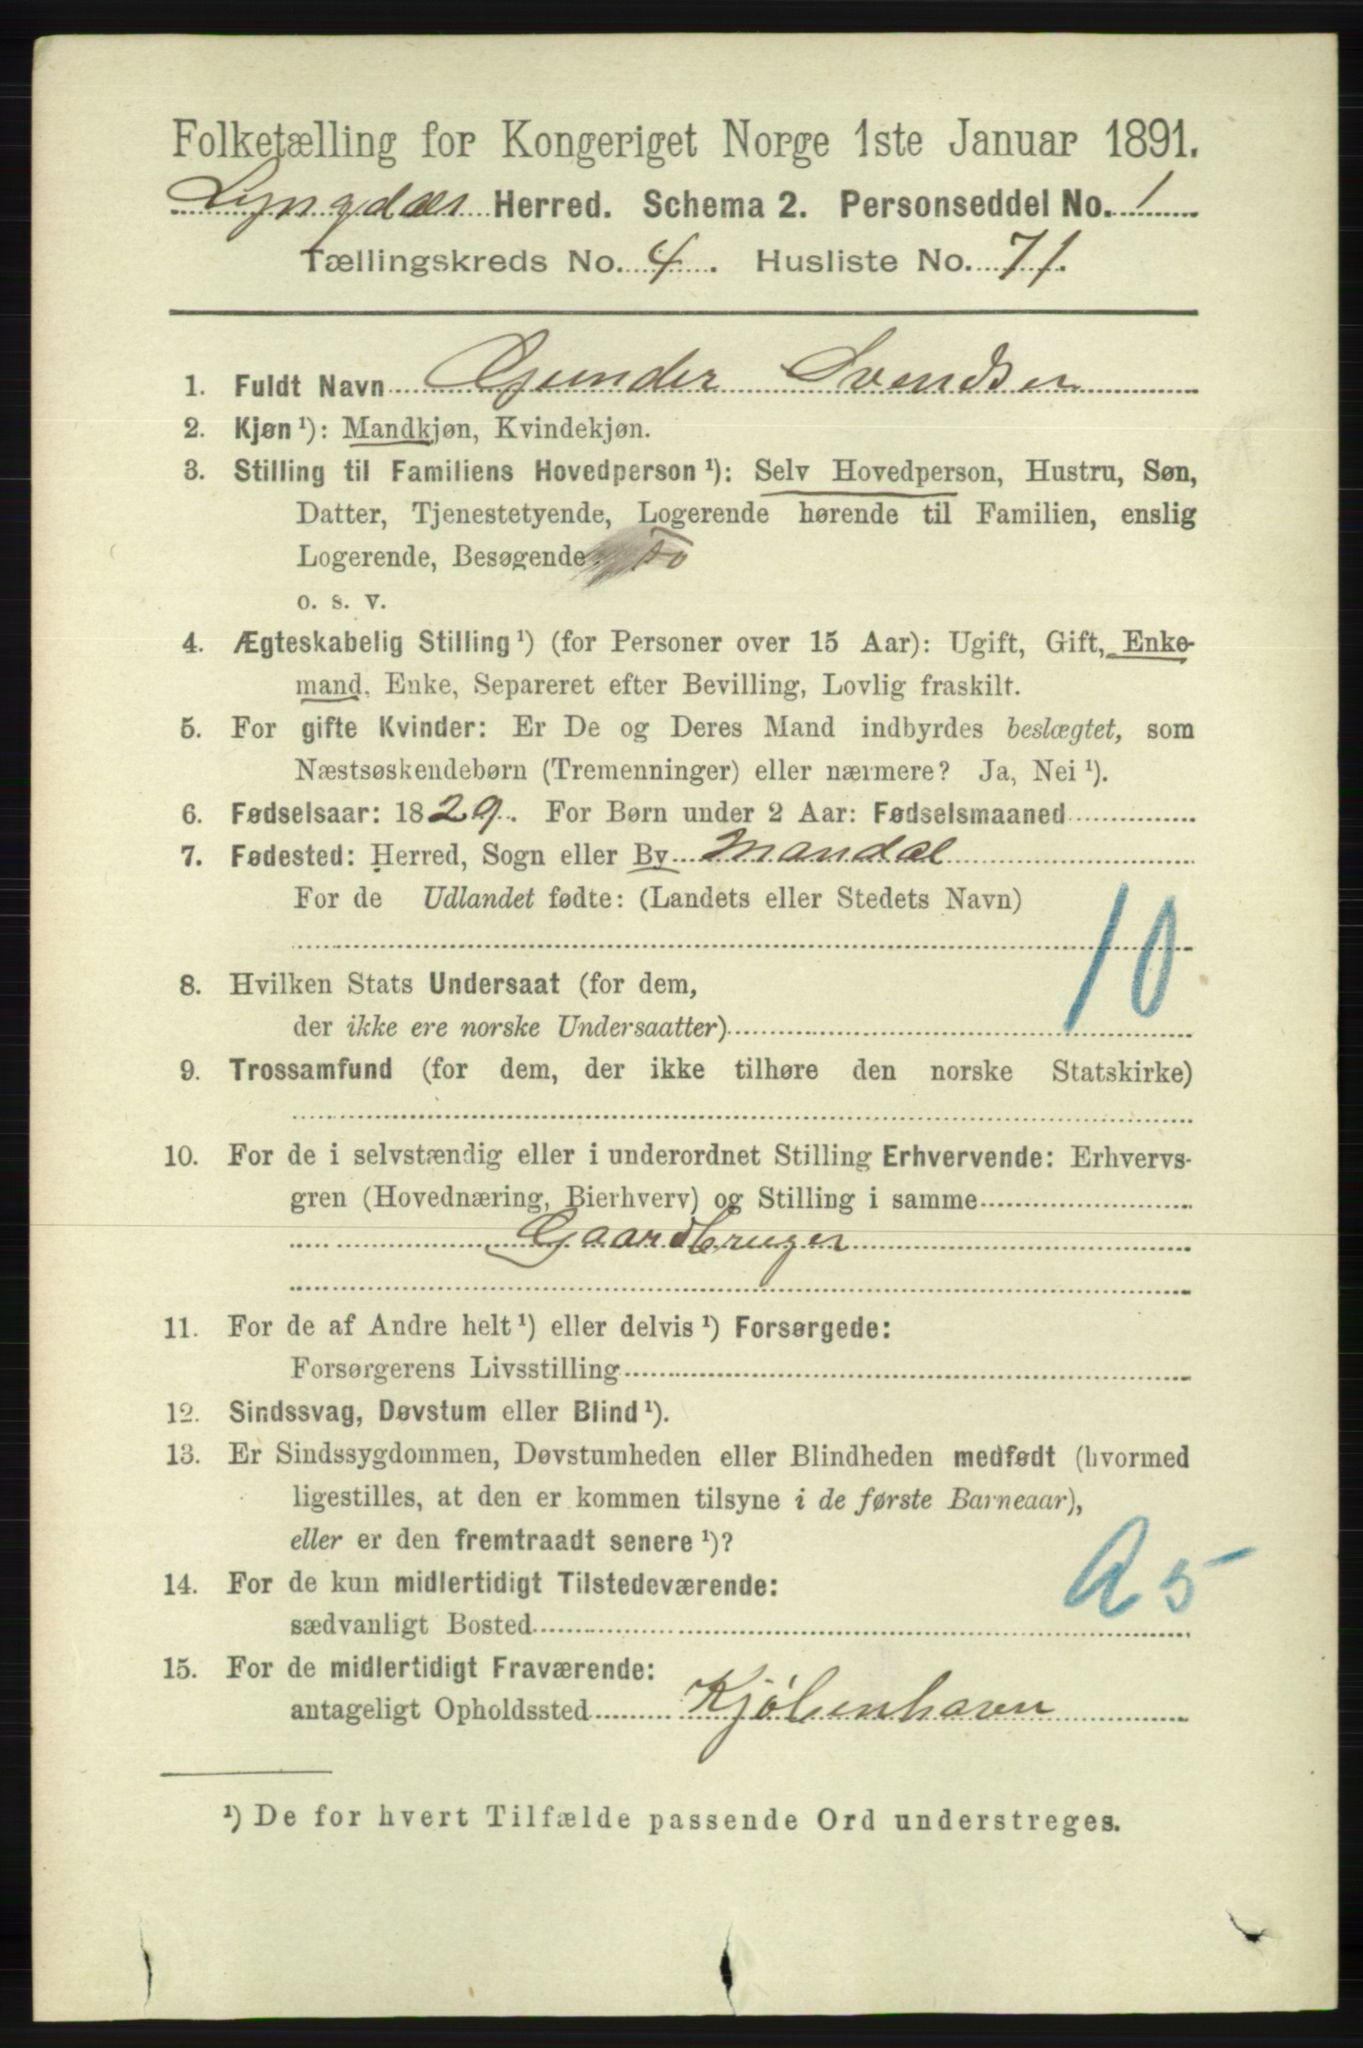 Folketælling for Kongeriget Norge 1ste Januar 1891.
Lyngdal Herred. Schema 2. Personseddel No. 1
Tællingskreds No. 4. Husliste No. 71.
1. Fuldt Navn Gunder Svendsen
2. Kjøn ¹): Mandkjøn, Kvindekjøn.
3. Stilling til Familiens Hovedperson ¹): Selv Hovedperson, Hustru, Søn,
Datter, Tjenestetyende, Logerende hørende til Familien, enslig
Logerende, Besøgende
o. s. v.
4. Ægteskabelig Stilling ¹) (for Personer over 15 Aar): Ugift, Gift, Enke-
mand, Enke, Separeret efter Bevilling, Lovlig fraskilt.
5. For gifte Kvinder: Er De og Deres Mand indbyrdes beslægtet, som
Næstsøskendebørn (Tremenninger) eller nærmere? Ja, Nei ¹).
6. Fødselsaar: 1829. For Børn under 2 Aar: Fødselsmaaned
7. Fødested: Herred, Sogn eller By Mandal
For de Udlandet fødte: (Landets eller Stedets Navn)
10
8. Hvilken Stats Undersaat (for dem,
der ikke ere norske Undersaatter)
9. Trossamfund (for dem, der ikke tilhøre den norske Statskirke)
10. For de i selvstændig eller i underordnet Stilling Erhvervende: Erhvervs-
gren (Hovednæring, Bierhverv) og Stilling i samme
Gaardbruger
11. For de af Andre helt ¹) eller delvis ¹) Forsørgede:
Forsørgerens Livsstilling
12. Sindssvag, Døvstum eller Blind ¹).
13. Er Sindssygdommen, Døvstumheden eller Blindheden medfødt (hvormed
ligestilles, at den er kommen tilsyne i de første Barneaar),
eller er den fremtraadt senere ¹)?
14. For de kun midlertidigt Tilstedeværende:
A 5
sædvanligt Bosted
15. For de midlertidigt Fraværende:
antageligt Opholdssted Kjöbenhavn
¹) De for hvert Tilfælde passende Ord understreges.